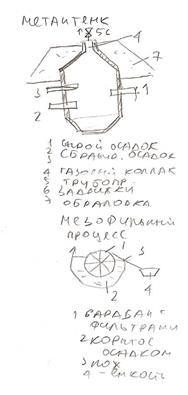 МЕТАНТЕНК
5 6
4
7
3
1
2
1 СЫРОЙ ОСАДОК
2 СБРАЖ. ОСАДОК
3
4 ГАЗОВЫЙ КОЛПАК
5 ТРУБОПР.
6 ЗАДВИЖКИ
7 ОБВАЛОВКА
МЕЗОФИЛЬНЫЙ
ПРОЦЕСС
1
3
4
2
1 БАРАБАН С
ФИЛЬТРАМИ
2 КОРЫТО С
ОСАДКОМ
3 НОЖ
4 - ЕМКОСТЬ